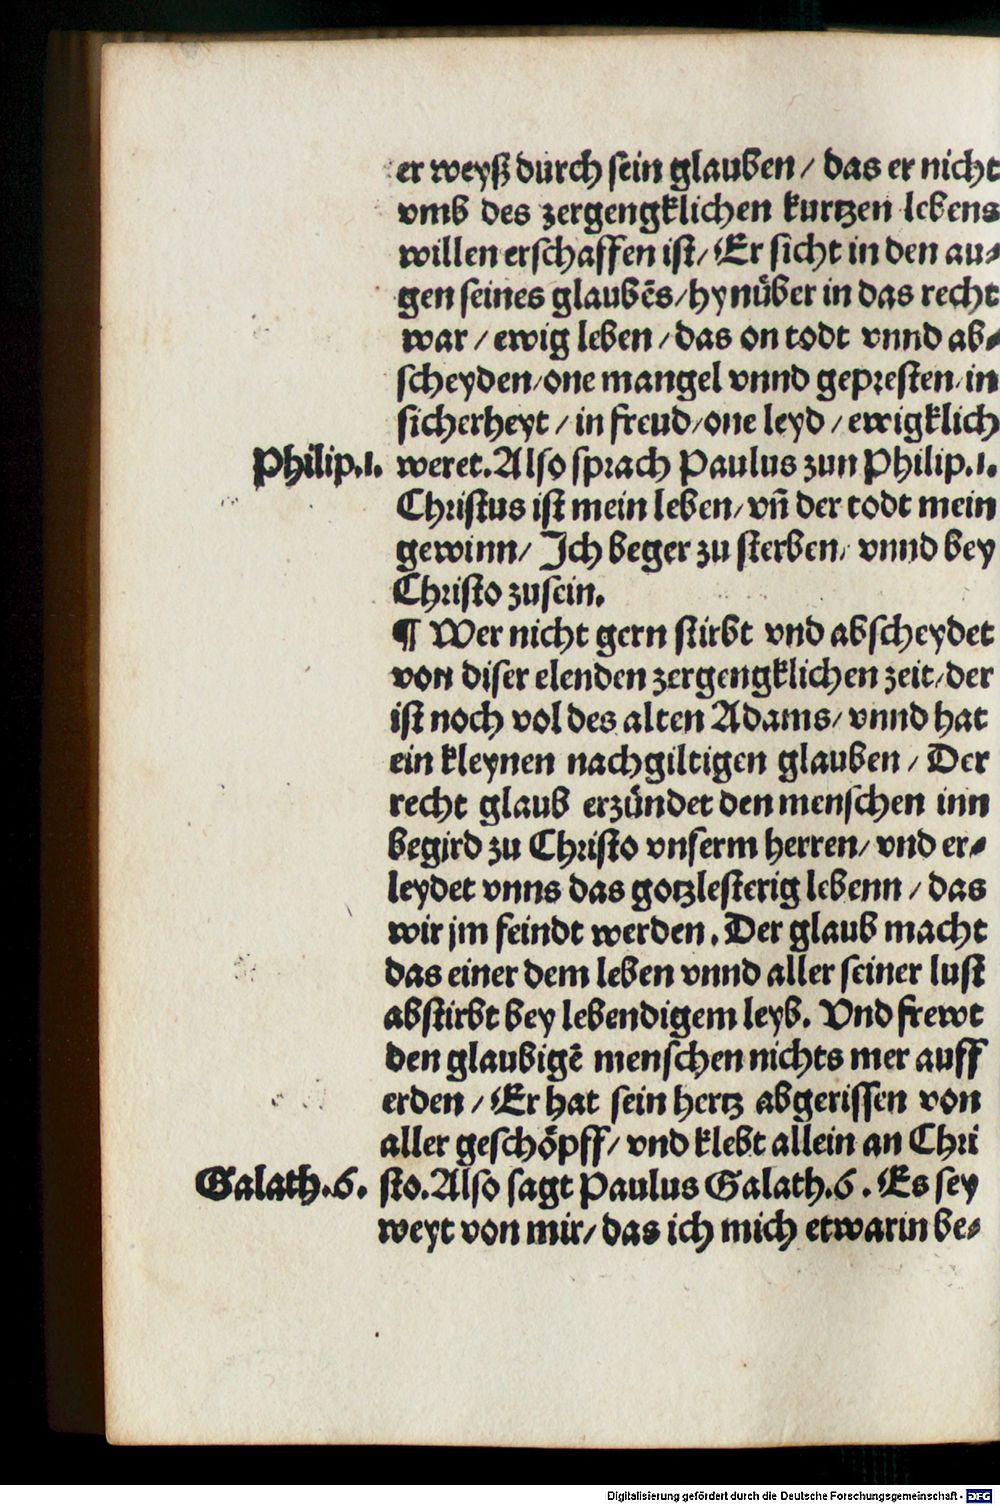 er weyß durch sein glauben / das er nicht
vmb des zergengklichen kurtzen lebens
willen erschaffen ist / Er sicht in den au⸗
gen seines glaubẽs / hynüber in das recht
war / ewig leben / das on todt vnnd ab⸗
scheyden / one mangel vnnd gepresten / in
sicherheyt / in freud / one leyd / ewigklich
Philip.1. weret. Also sprach Paulus zun Philip.1.
Christus ist mein leben / vñ der todt mein
gewinn / Ich beger zu sterben / vnnd bey
Christo zusein.
¶ Wer nicht gern stirbt vnd abscheydet
von diser elenden zergengklichen zeit / der
ist noch vol des alten Adams / vnnd hat
ein kleynen nachgiltigen glauben / Der
recht glaub erzündet den menschen inn
begird zu Christo vnserm herren / vnd er⸗
leydet vnns das gotzlesterig lebenn / das
wir jm feindt werden. Der glaub macht
das einer dem leben vnnd aller seiner lust
abstirbt bey lebendigem leyb. Vnd frewt
den glaubigẽ menschen nichts mer auff
erden / Er hat sein hertz abgerissen von
aller geschöpff / vnd klebt allein an Chri
Galath.6. sto. Also sagt Paulus Galath.6. Es sey
weyt von mir / das ich mich etwarin be⸗
Digitalisierung gefördert durch die Deutsche Forschungsgemeinschaft - DFG